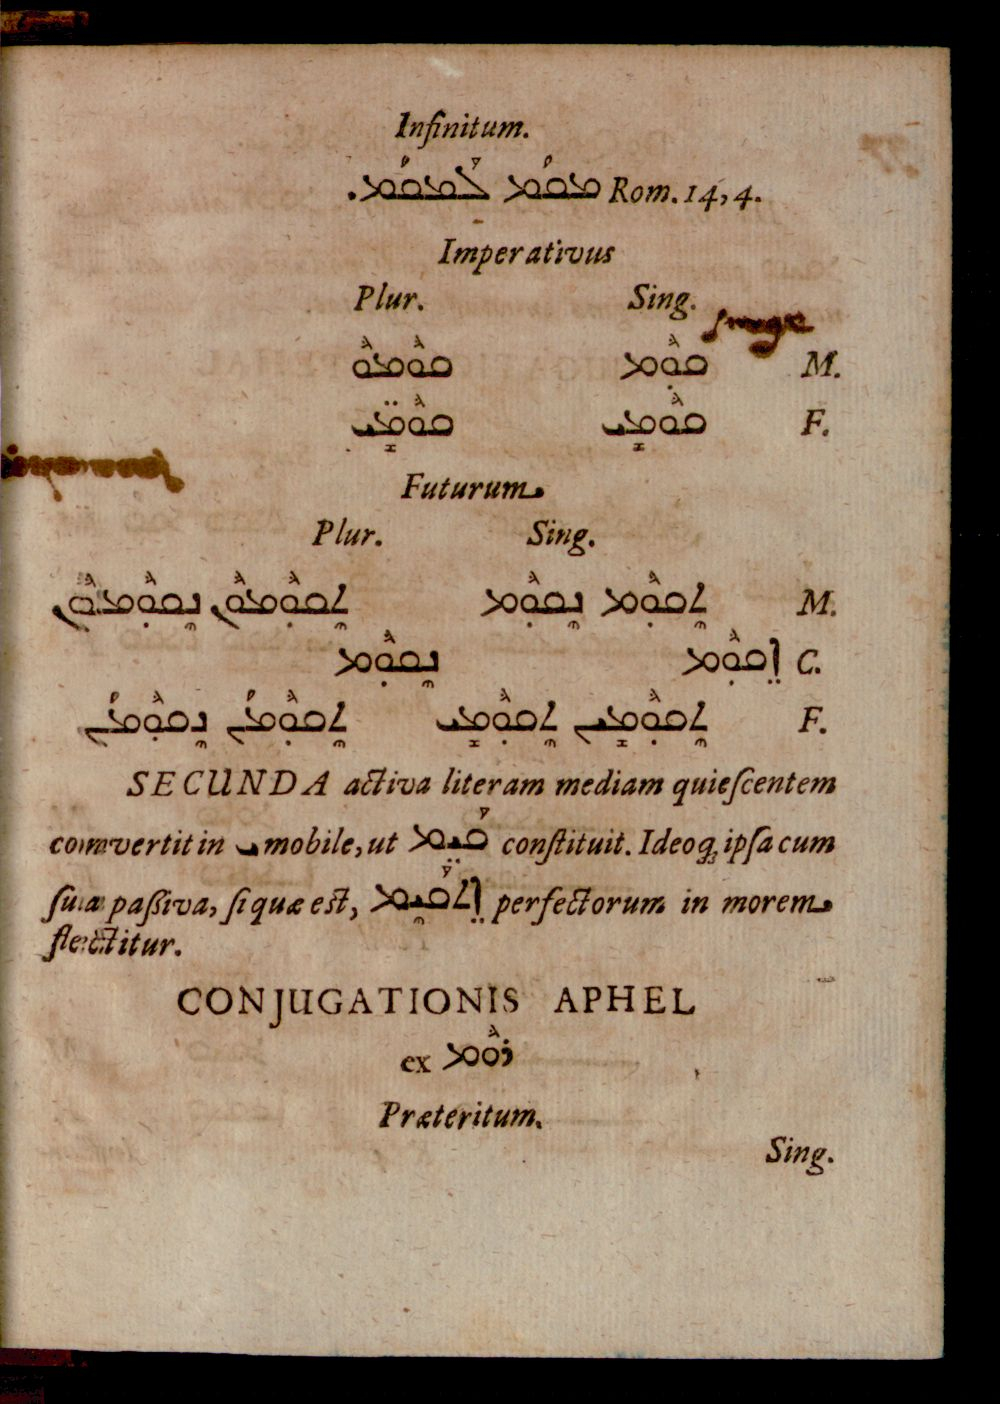 Infinitum.
ܡܩܳܡ ܠܰܡܩܳܡ. Rom. 14, 4.
Imperativus
Plur. Sing.
M. ܩܽܘܡ ܩܽܘܡܽܘ
F. ܩܽܘܡܝ ܩܽܘܡܝ̈
Futurum
Plur. Sing.
M. ܬܩܽܘܡ ܢܩܽܘܡ ܬܩܽܘܡܽܘܢ ܢܩܽܘܡܽܘܢ
C. ܐܩܽܘܡ ܢܩܽܘܡ
F. ܬܩܽܘܡܝܢ ܬܩܽܘܡܝ ܬܩܽܘܡܳܢ ܢܩܽܘܡܳܢ
SECUNDA activa literam mediam quieſcentem
convertit in ܝ mobile, ut ܩܰܝܡ conſtituit. Ideoq; ipſa cum
ſua paßiva, ſi quæ eſt, ܐܬܩܰܝܡ perfectorum in morem
flectitur.
CONJUGATIONIS APHEL
ex ܪܽܘܡ
Præteritum.
Sing.